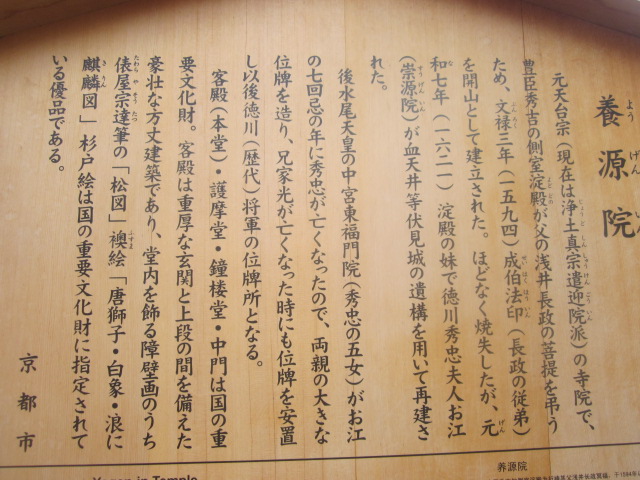 養源院
よう げん いん
元天台宗（現在は浄土真宗遣迎院派）の寺院で、
豊臣秀吉の側室淀殿が父の浅井長政の菩提を弔う
ため、文禄三年（一五九四）成伯法印（長政の従弟）
を開山として建立された。ほどなく焼失したが、元
和七年（一六二一）淀殿の妹で徳川秀忠夫人お江
（崇源院）が血天井等伏見城の遺構を用いて再建さ
れた。
後水尾天皇の中宮東福門院（秀忠の五女）がお江
の七回忌の年に秀忠が亡くなったので、両親の大きな
位牌を造り、兄家光が亡くなった時にも位牌を安置
し以後徳川（歴代）将軍の位牌所となる。
客殿（本堂）・護摩堂・鐘楼堂・中門は国の重
要文化財。客殿は重厚な玄関と上段の間を備えた
豪壮な方丈建築であり、堂内を飾る障壁画のうち
俵屋宗達筆の「松図」襖絵「唐獅子・白象・浪に
麒麟図」杉戸絵は国の重要文化財に指定されて
いる優品である。
京都市
Yogen-in Temple
养源院